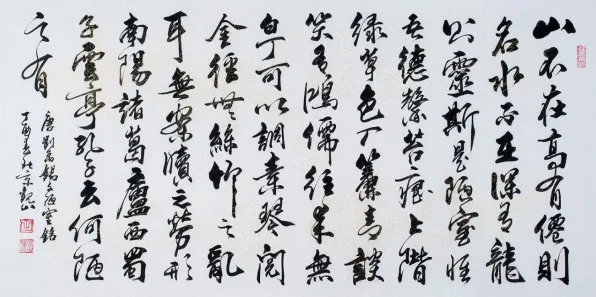 山不在高有僊則
名水不在深有龍
則靈斯是陋室惟
吾德馨苔痕上階
綠草色入簾青談
笑有鴻儒往來無
白丁可以調素琴閱
金經無絲竹之亂
耳無案牘之勞形
南陽諸葛廬西蜀
子雲亭孔子云何陋
之有
唐劉禹錫文陋室銘
丁酉春於京